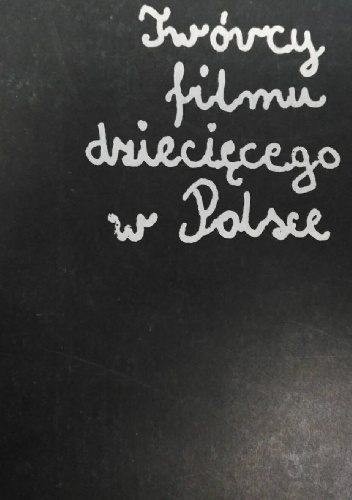 Twórcy
filmu
dziecięcego
w Polsce